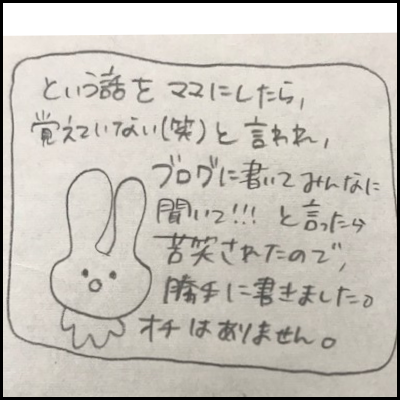 という話を ママにしたら,
覚えていない(笑)と言われ,
ブログに書いてみんなに
聞いて!!! と言ったら
苦笑されたので,
勝手に書きました。
オチはありません。